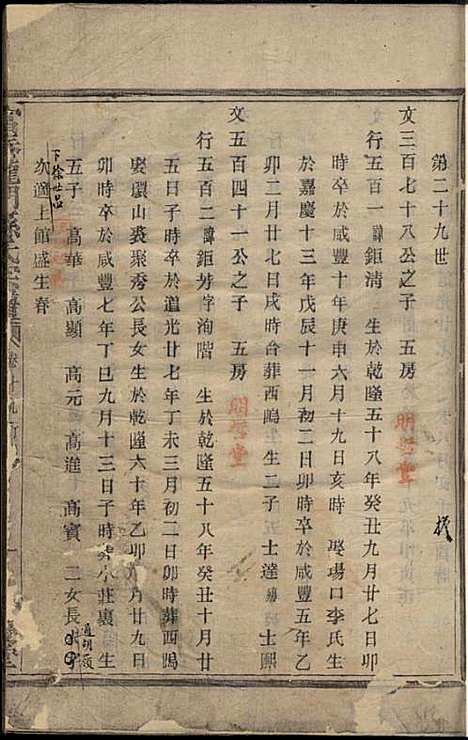 第二十九世
文三百七十八公之子 五房
行五百一諱鉅清 生於乾隆五十八年癸丑九月廿七日卯
時卒於咸豐十年庚申六月十九日亥時 娶場口李氏生
於嘉慶十三年戊辰十一月初二日卯時卒於咸豐五年乙
卯二月廿七日戌時合葬西塢 生二子 士達 士熙
文五百四十一公之子 五房
行五百二諱鉅芳字洵階 生於乾隆五十八年癸丑十月廿
五日子時卒於道光廿七年丁未三月初二日卯時葬西塢
娶環山裘聚秀公長女生於乾隆六十年乙卯 月廿九日
卯時卒於咸豐七年丁巳九月十三日子時 小莊裏 生
五子 高華 高顯 高元 高進 高賓 二女長
次適上館盛生春
明哲堂
明哲堂